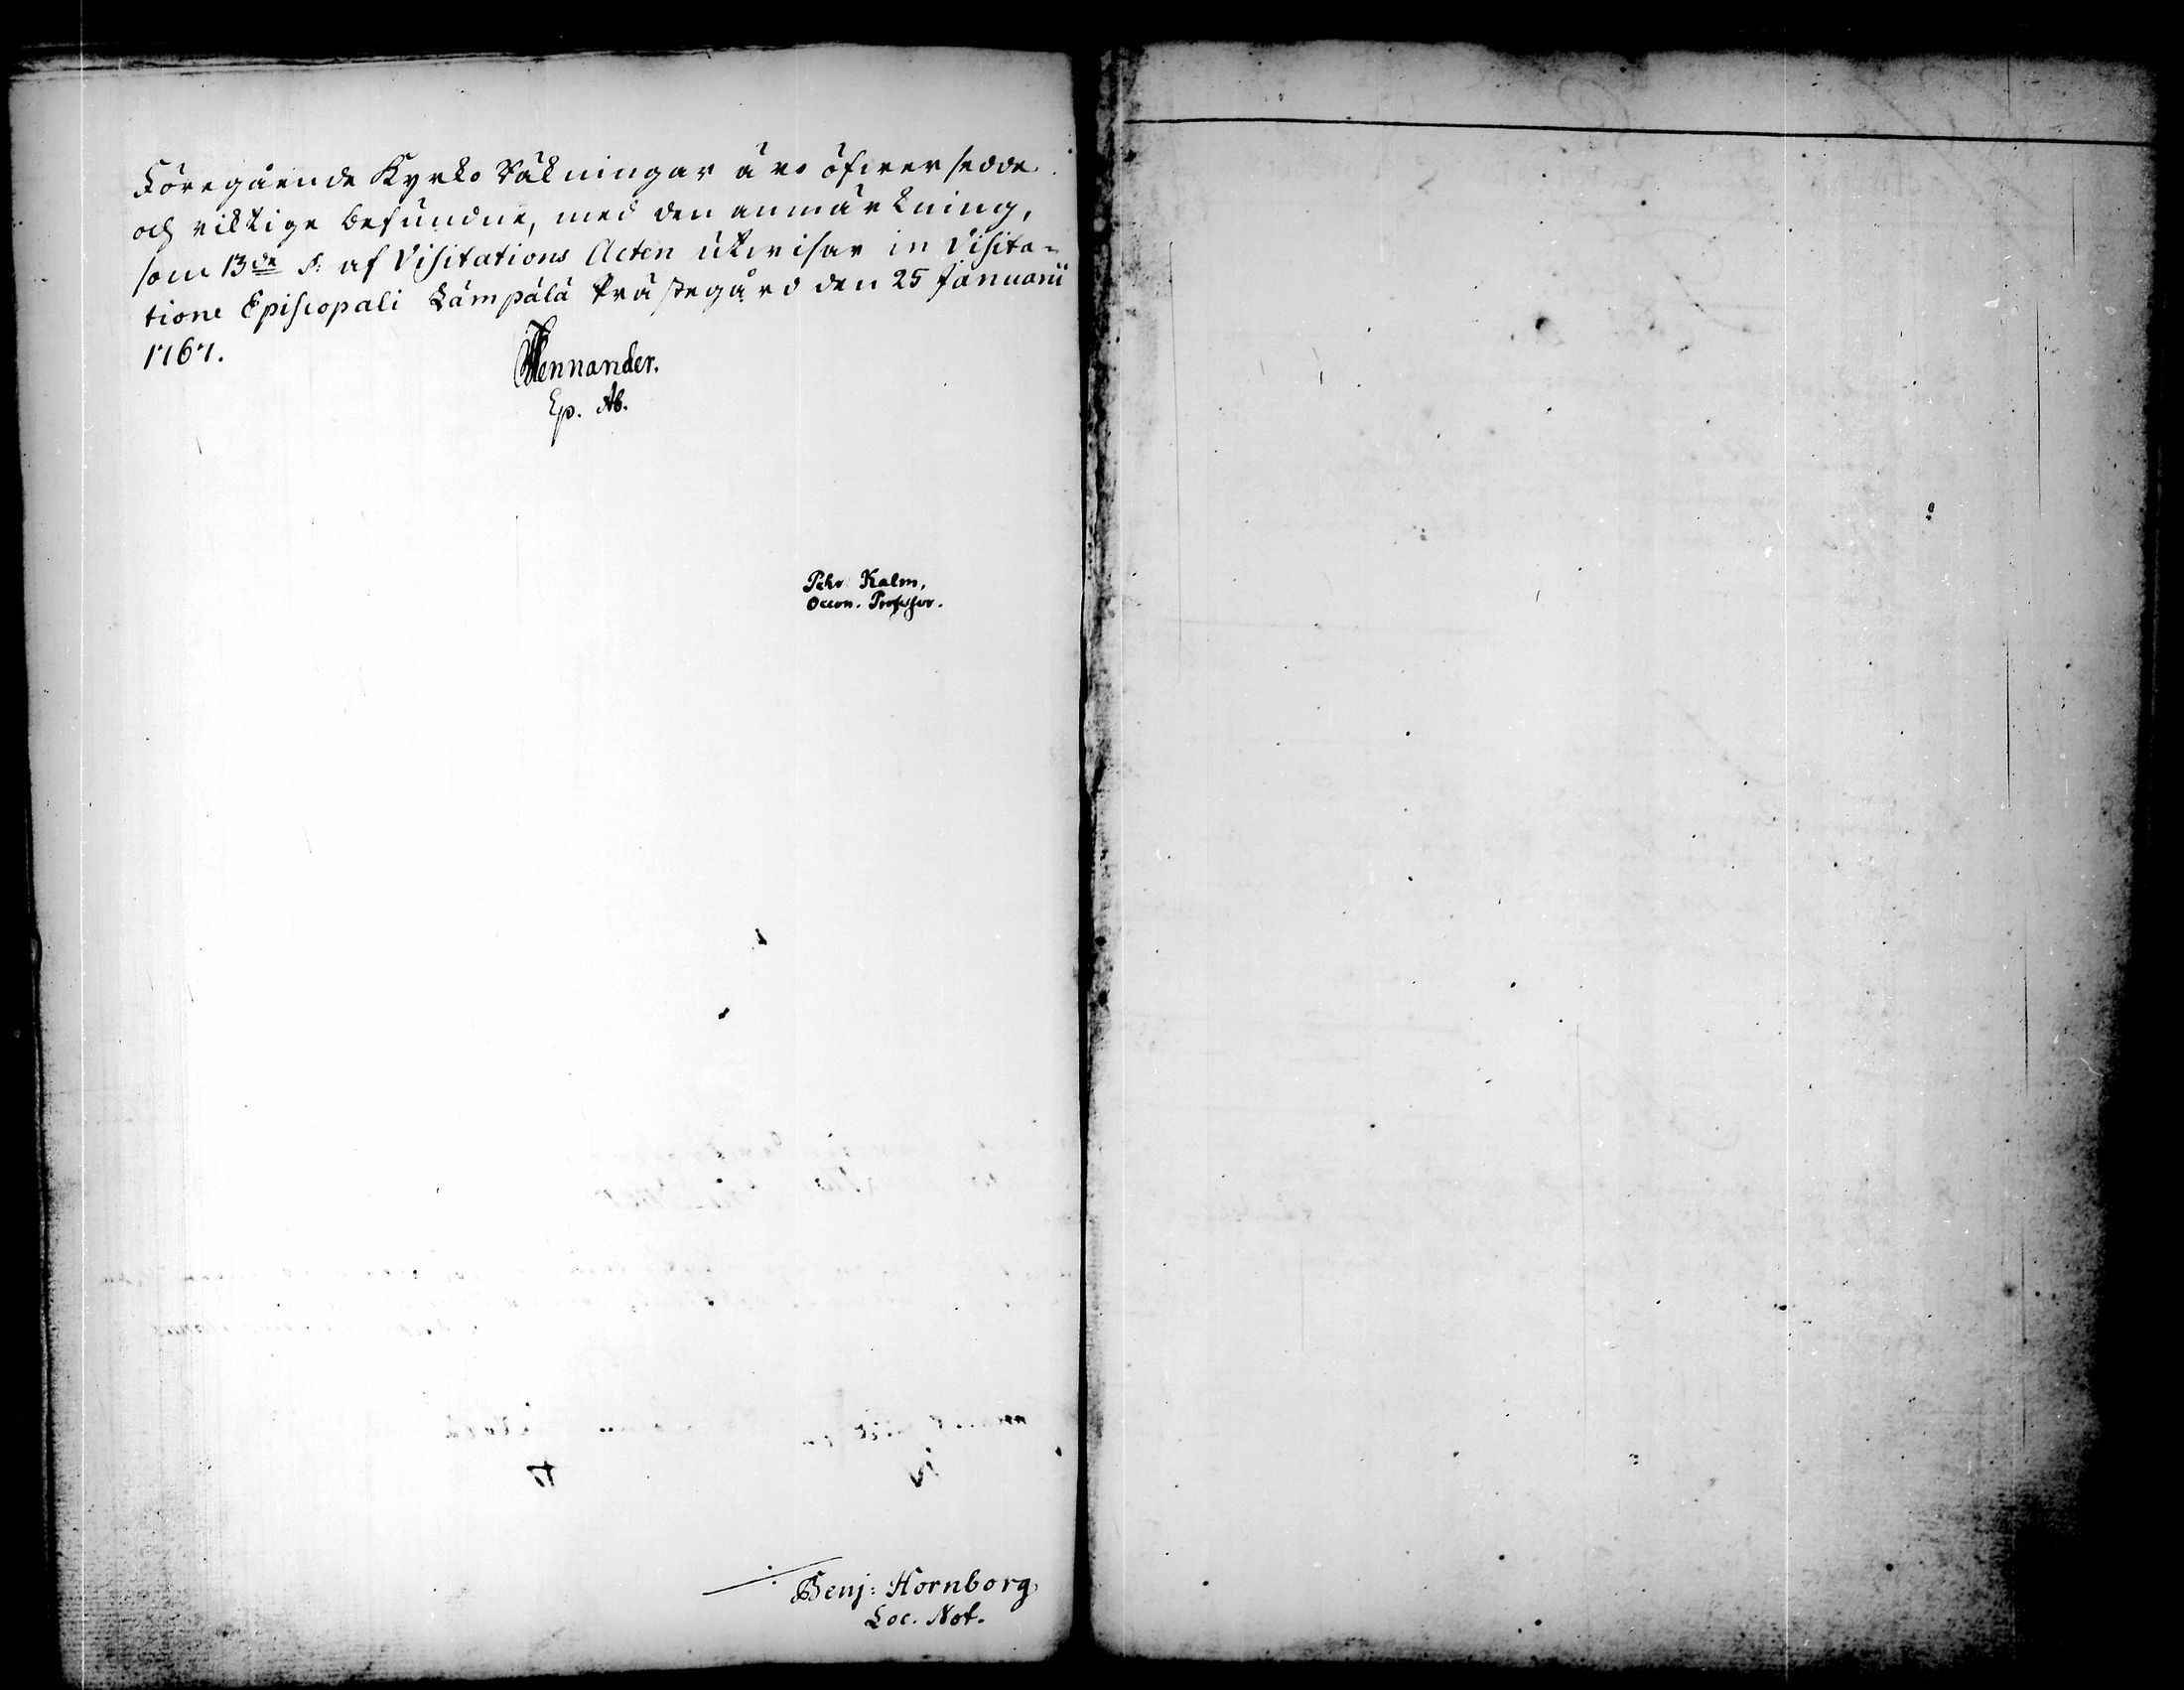 Föregående Kyrko Räkningar äro öfwersedde
och riktige befundne, med den anmärkning,
som 13de §. af Visitations Acten utwisar in Visita-
tione Episcopali Lämpälä Prästegård den 25 Januarii
1767.
CFMennander.
Ep. Ab.
Pehr Kalm,
Oecon. Professor.
Benj: Hornborg
Loc. Not.